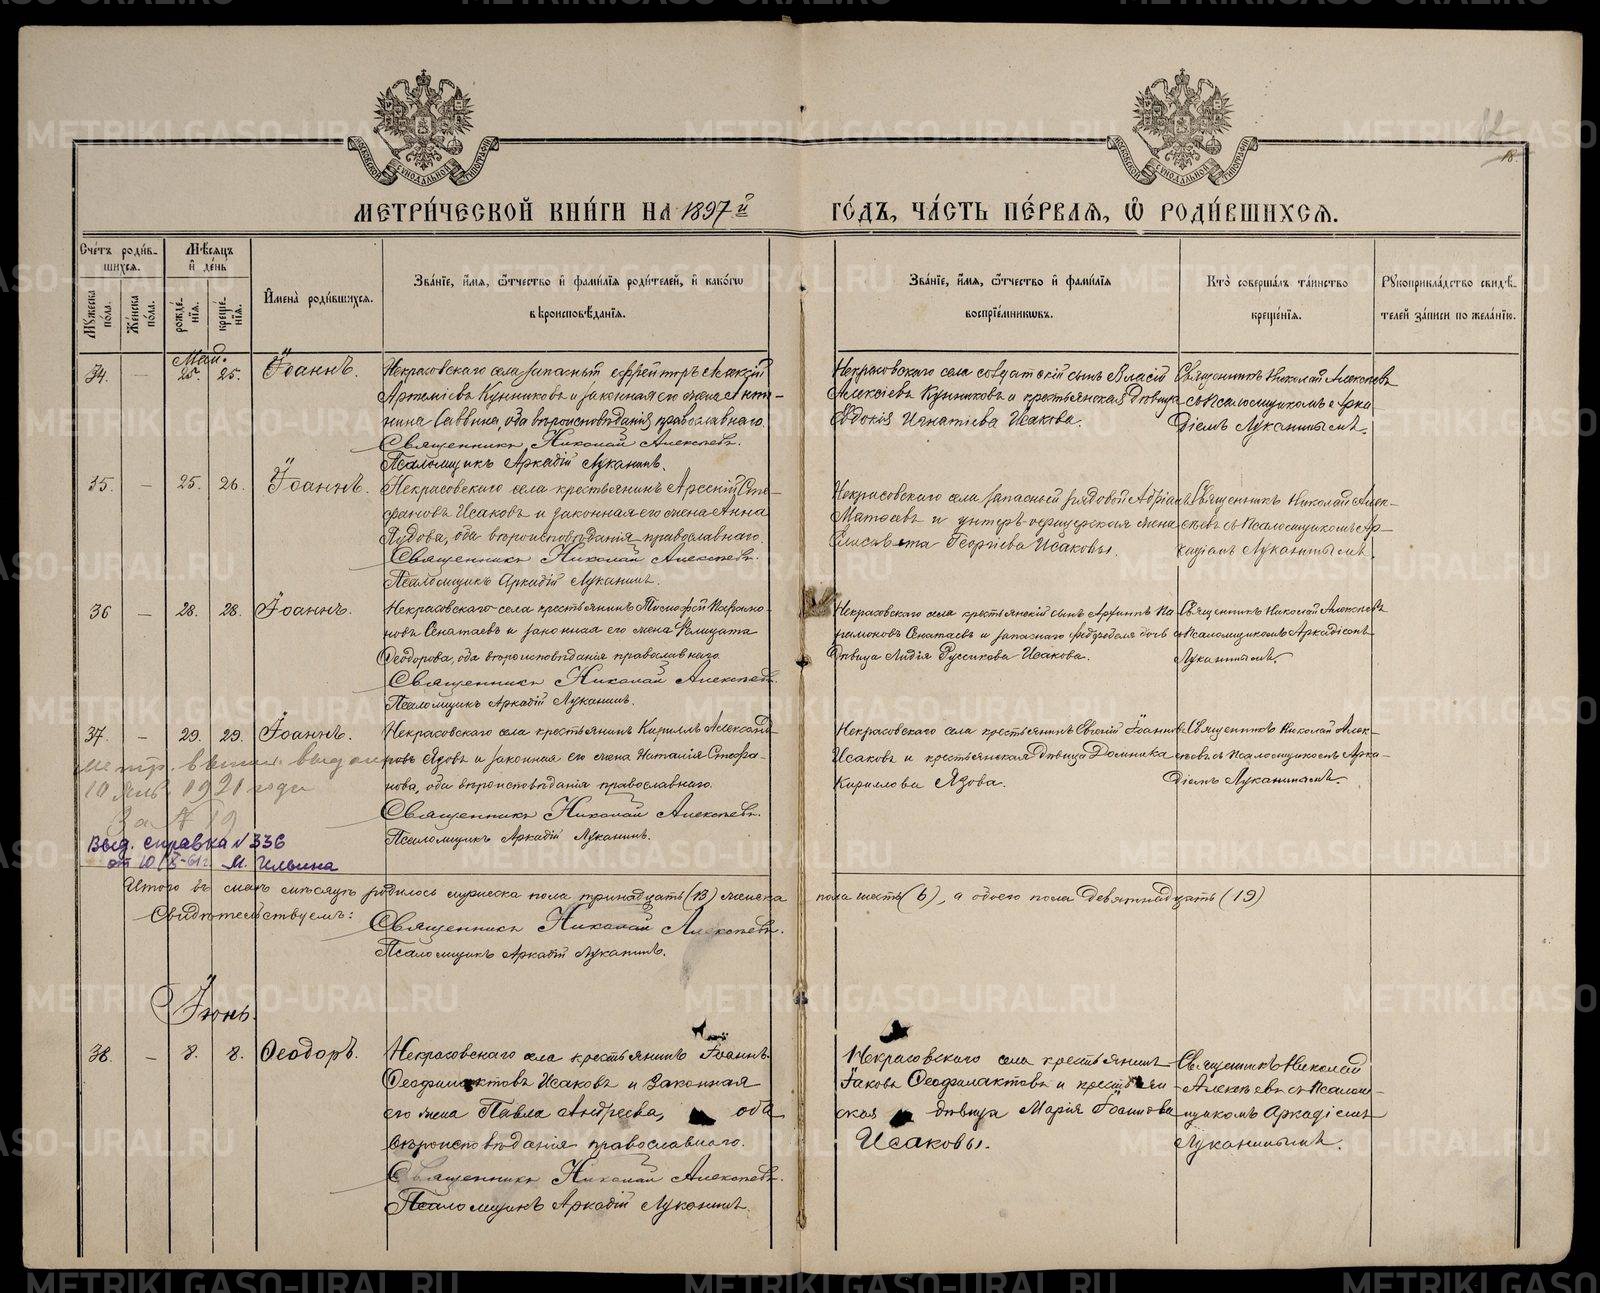 МЕТРИ́ЧЕСКОЙ КНИ́ГИ НА 1897й ГО́ДЪ, ЧА́СТЬ ПЕ́РВАЯ, Ѡ РОДИ́ВШИХСЯ.
18.
Сче́тъ роди́вшихся.
Му́жеска по́ла.
Же́нска по́ла.
Мѣ́сяцъ и де́нь
рожде́нія.
креще́нія.
Имена̀ роди́вшихся.
Зва́ніе, и́мя, ѻ́тчество и фами́лія роди́телей, и како́гѡ
вѣроисповѣ́данія.
Зва́ніе, и́мя, ѻ́тчество и фами́лія
воспріе́мниковъ.
Кто̀ соверша́лъ та́инство
креще́нія.
Рꙋкоприкла́дство свидѣ́-
телей за́писи по жела́нію.
Май.
34. — 25. 25. Іоаннъ.
Некрасовскаго села запасный ефрейторъ Алексій
Артеміевъ Кунниковъ и законная его жена Анто-
нина Саввина, оба вѣроисповѣданія православнаго.
Священникъ Николай Алексѣевъ.
Псаломщикъ Аркадій Луканинъ.
Некрасовскаго села солдатскій сынъ Власій
Алексіевъ Кунниковъ и крестьянская дѣвица
Евдокія Игнатіева Исакова.
Священникъ Николай Алексѣевъ
съ Псаломщикомъ Арка
діемъ Луканинымъ.
35. — 25. 26. Іоаннъ.
Некрасовскаго села крестьянинъ Арсеній Сте-
фановъ Исаковъ и законная его жена Анна
Іудова, оба вѣроисповѣданія православнаго.
Священникъ Николай Алексѣевъ.
Псаломщикъ Аркадій Луканинъ.
Некрасовскаго села запасный рядовой Адріанъ
Матѳеевъ и унтеръ-офицерская жена
Елисавета Георгіева Исаковы.
Священникъ Николай Алек-
сѣевъ съ Псаломщикомъ Ар-
кадіемъ Луканинымъ.
36 — 28. 28. Іоаннъ.
Некрасовскаго села крестьянинъ Тимофей Парамо-
новъ Сенатаевъ и законная его жена Фелицата
Ѳеодорова, оба вѣроисповѣданія православнаго.
Священникъ Николай Алексѣевъ.
Псаломщикъ Аркадій Луканинъ.
Некрасовскаго села крестьянскій сынъ Архиппъ Па
рамоновъ Сенатаевъ и запаснаго фельдфебеля дочь
дѣвица Лидія Руфинова Исакова.
Священникъ Николай Алексѣевъ
съ Псаломщикомъ Аркадіемъ
Луканинымъ.
37. — 29. 29. Іоаннъ.
Некрасовскаго села крестьянинъ Кириллъ Александ-
ровъ Язовъ и законная его жена Наталія Стефа-
нова, оба вѣроисповѣданія православнаго.
Священникъ Николай Алексѣевъ.
Псаломщикъ Аркадій Луканинъ.
Некрасовскаго села крестьянинъ Евгеній Іоанновъ
Исаковъ и крестьянская дѣвица Домника
Кириллова Язова.
Священникъ Николай Алек-
сѣевъ съ Псаломщикомъ Арка-
діемъ Луканинымъ.
метр. выпис. выдан
10 Янв. 1921 года
За № 19
Выд. справка N 336
от 10/X-61г. М. Ильина
Итого въ маѣ мѣсяцѣ родилось мужеска пола тринадцать (13) женска пола шесть (6), а обоего пола девятнадцать (19)
Свидѣтельствуемъ:
Священникъ Николай Алексѣевъ.
Псаломщикъ Аркадій Луканинъ.
Іюнь.
38. — 8. 8. Ѳеодоръ.
Некрасовскаго села крестьянинъ Іоаннъ
Ѳеофилактовъ Исаковъ и законная
его жена Павла Андреева, оба
вѣроисповѣданія православнаго.
Священникъ Николай Алексѣевъ.
Псаломщикъ Аркадій Луканинъ.
Некрасовскаго села крестьянинъ
Іаковъ Ѳеофилактовъ и крестьян
ская дѣвица Марія Іоаннова
Исаковы.
Священникъ Николай
Алексѣевъ съ Псалом-
щикомъ Аркадіемъ
Луканинымъ.